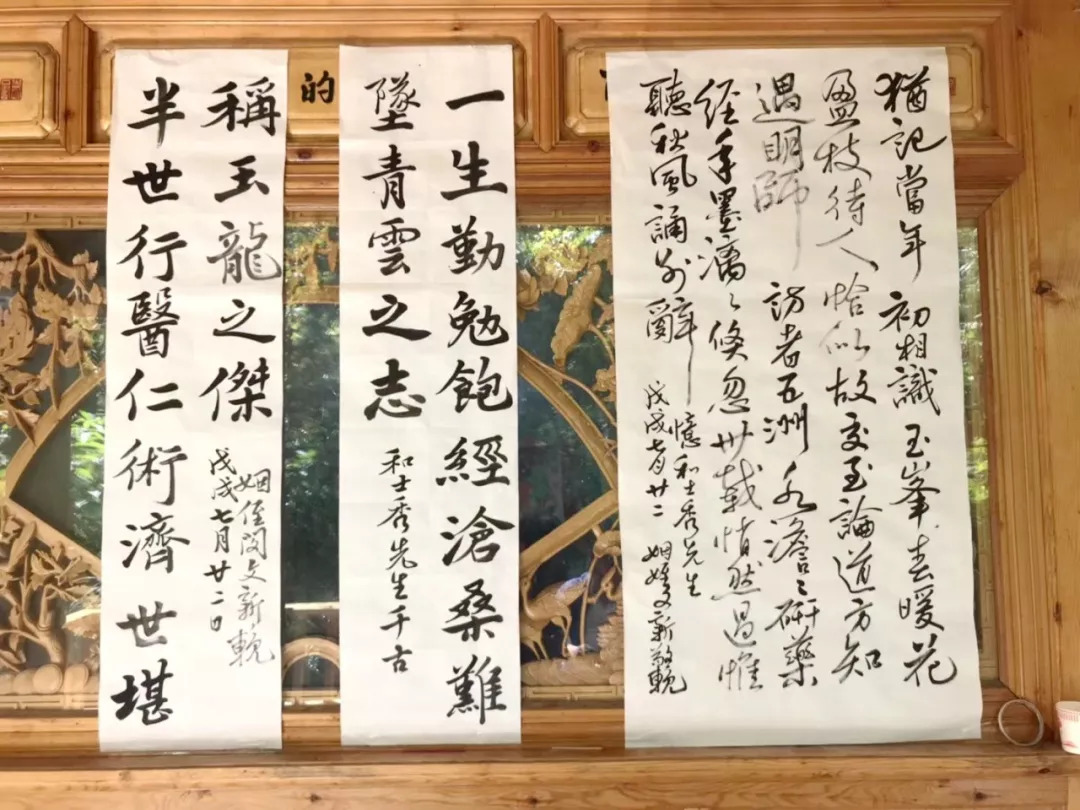 猶記當年初相識玉峯春暖花
盈枝待人恰似故交至論道方知
遇明師訪者五洲水澹〻研藥
经年墨漓〻倏忽卅載悄然過惟
聽秋風誦別辭
憶和士秀先生
戊戌七月廿二 姻婿文新敬輓
一生勤勉飽經滄桑難
墜青雲之志
和士秀先生千古
半世行醫仁術濟世堪
稱玉龍之傑
姻侄闵文新輓
戊戌七月廿二日
的